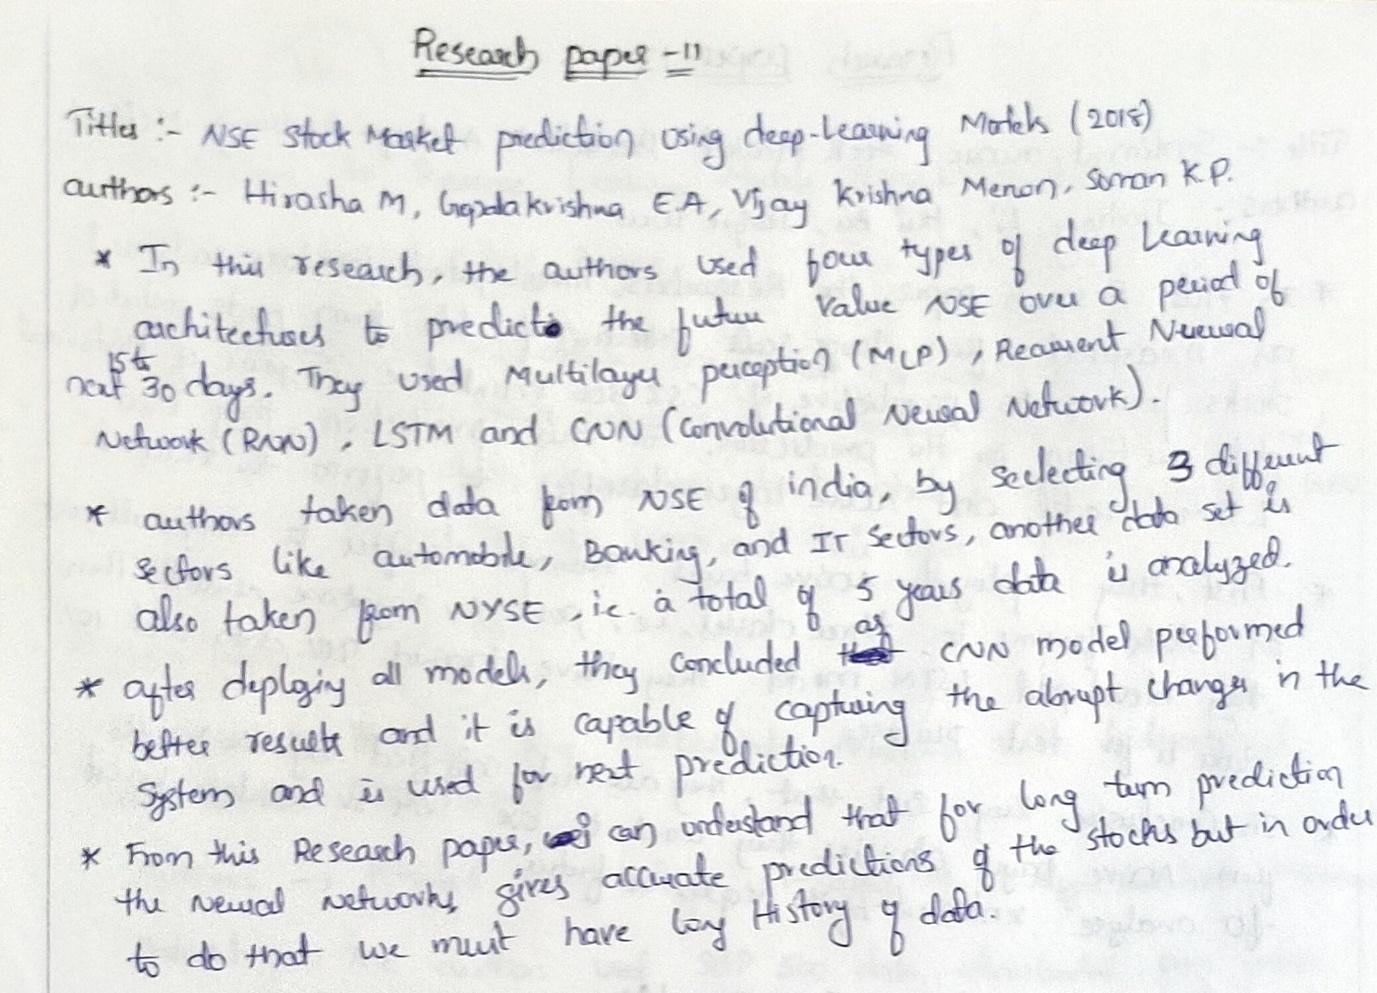 Research paper - 11
Titles :- NSE Stock Market prediction using deep-learning Models (2018)
authors :- Hirasha M, Gopalakrishna E.A, Vijay Krishna Menon, Soman K.P.
* In this research, the authors used four types of deep learning
architectures to predict the future value NSE over a period of
next 1st 30 days. They used Multilayer perception (MLP), Recurrent Neural
Network (RNN), LSTM and CNN (Convolutional Neural Network).
* authors taken data from NSE of india, by seclecting 3 different
sectors like automobile, Banking, and IT Sectors, another data set is
also taken from NYSE, i.e. a total of 5 years data is analyzed.
* after deploying all models, they concluded as CNN model performed
better results and it is capable of capturing the abrupt changes in the
System and is used for next prediction.
* From this Research paper, can understand that for long term prediction
the neural networks gives accurate predictions of the stocks but in order
to do that we must have long History of data.